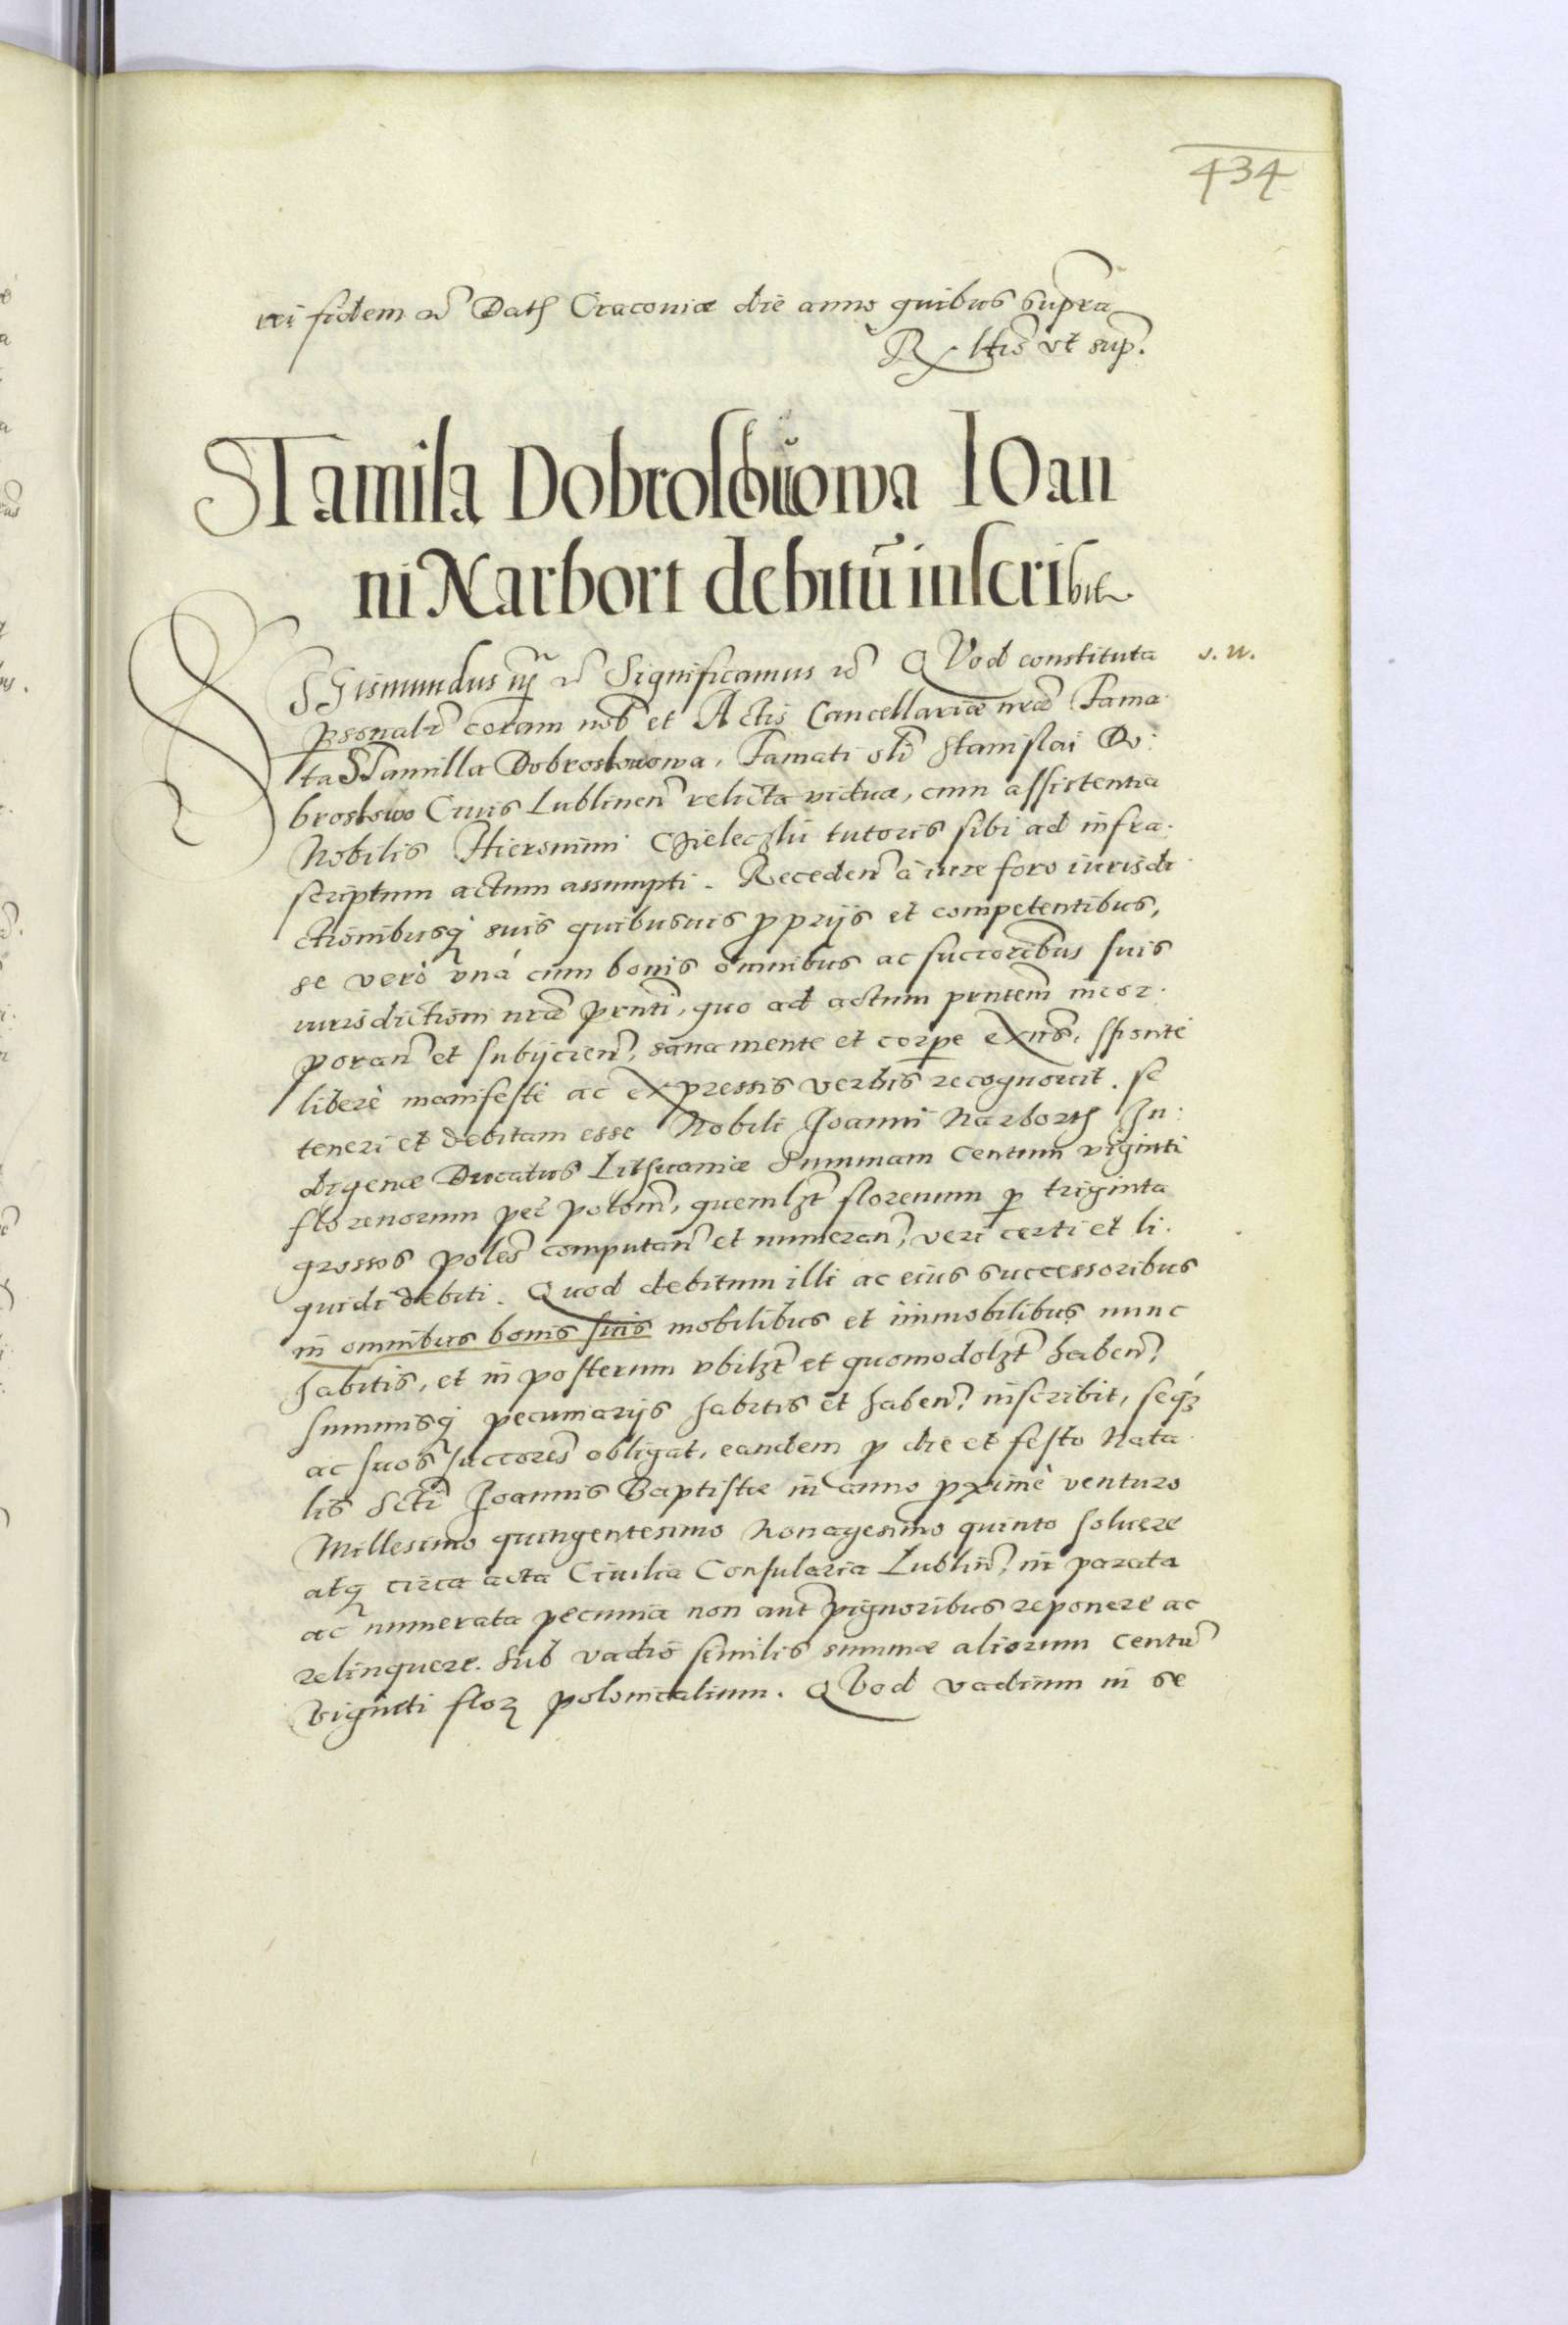 434
rei fidem etc Dat Cracoviæ die anno quibus supra
Rx ltis vt sup.
STamila Dobroslowowa IOan
ni Narbort debitũ inscribit
SIGismundus iij etc Significamus etc QVod constituta
s. n.
psonalr coram nob et Actis Cancellariæ nræ Fama
ta STamilla Dobroslowowa, Famati oli Stanislai Do:
broslowo Ciuis Lublinen relicta vidua, cum assistentia
Nobilis Hieronimi tutoris sibi ad infra
scriptum actum assumpti. Receden à iure foro iurisdi
ctionibusq suis quibusuis pprijs et competentibus,
se verò vnà cum bonis omnibus ac succoribus suis
iurisdictioni nræ pnti, quo ad actum pntem incor
poran et subijcien, sana mente et corpe exns, sponte
liberè manifestè ac expressis verbis recognouit. se
teneri et debitam esse Nobili Joanni Narborth In:
digenæ Ducatus Lithuaniæ Summam Centum viginti
florenorum pec polon, quemlzt florenum p triginta
grossos poles computan et numeran, veri certi et li
quidi debiti. Quod debitum illi ac eius successoribus
in omnibus bonis suis mobilibus et immobilibus nunc
habitis, et in posterum vbilzt et quomodolzt haben,
summisq pecuniarijs habitis et haben, inscribit, seqz
ac suos succores obligat, eandem p die et festo Nata
lis Scti Joannis Baptistæ in anno pximè venturo
Millesimo quingentesimo Nonagesimo quinto soluere
atq circa acta Ciuilia Consularia Lublin, in parata
ac numerata pecunia non aut pignoribus reponere ac
relinquere. Sub vadio similis summæ aliorum Centũ
Viginti flor polonicalium. QVod vadium in se